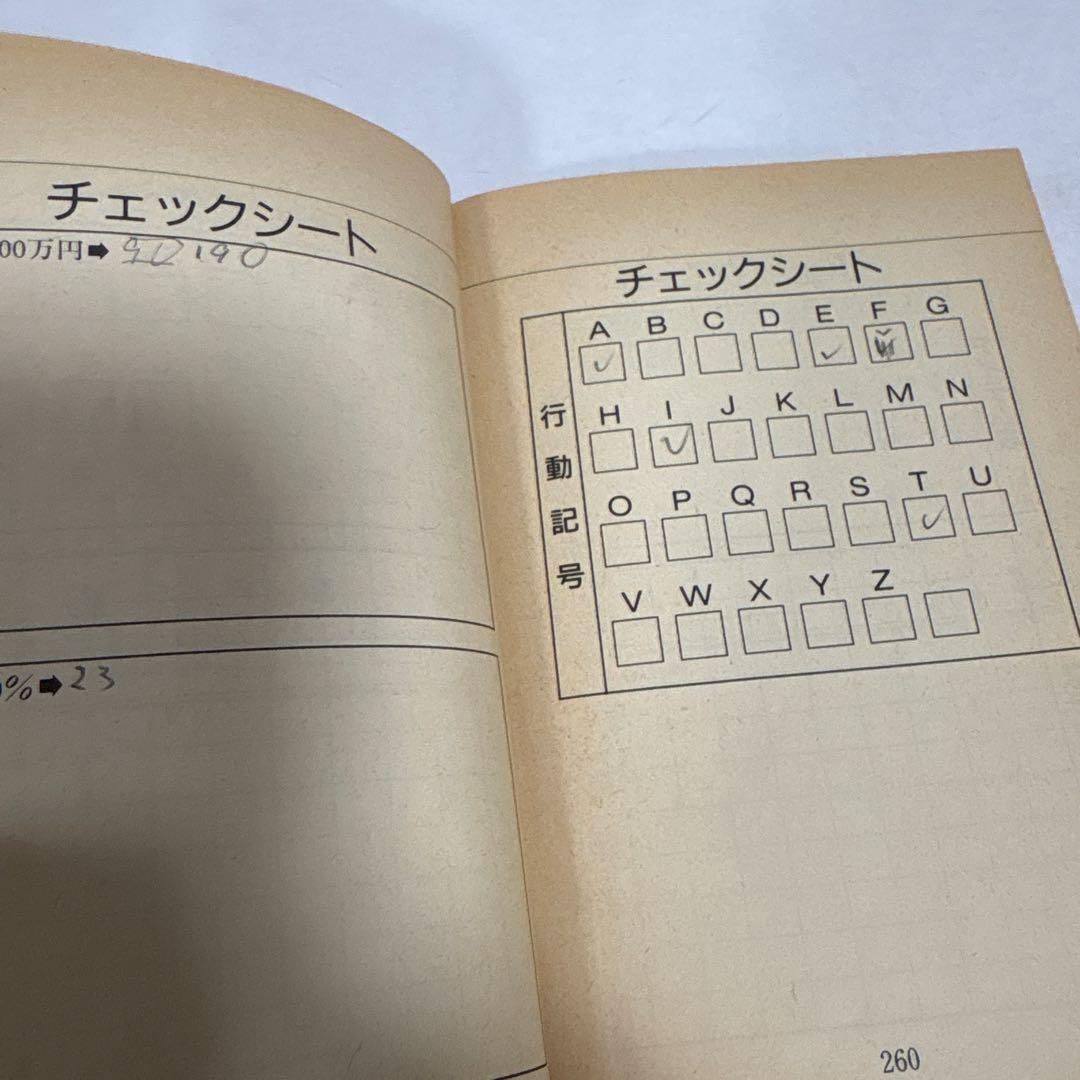 チェックシート
00万円➡
%➡23
チェックシート
行動記号
A B C D E F G
✓ ✓
H I J K L M N
✓
O P Q R S T U
✓
V W X Y Z
260